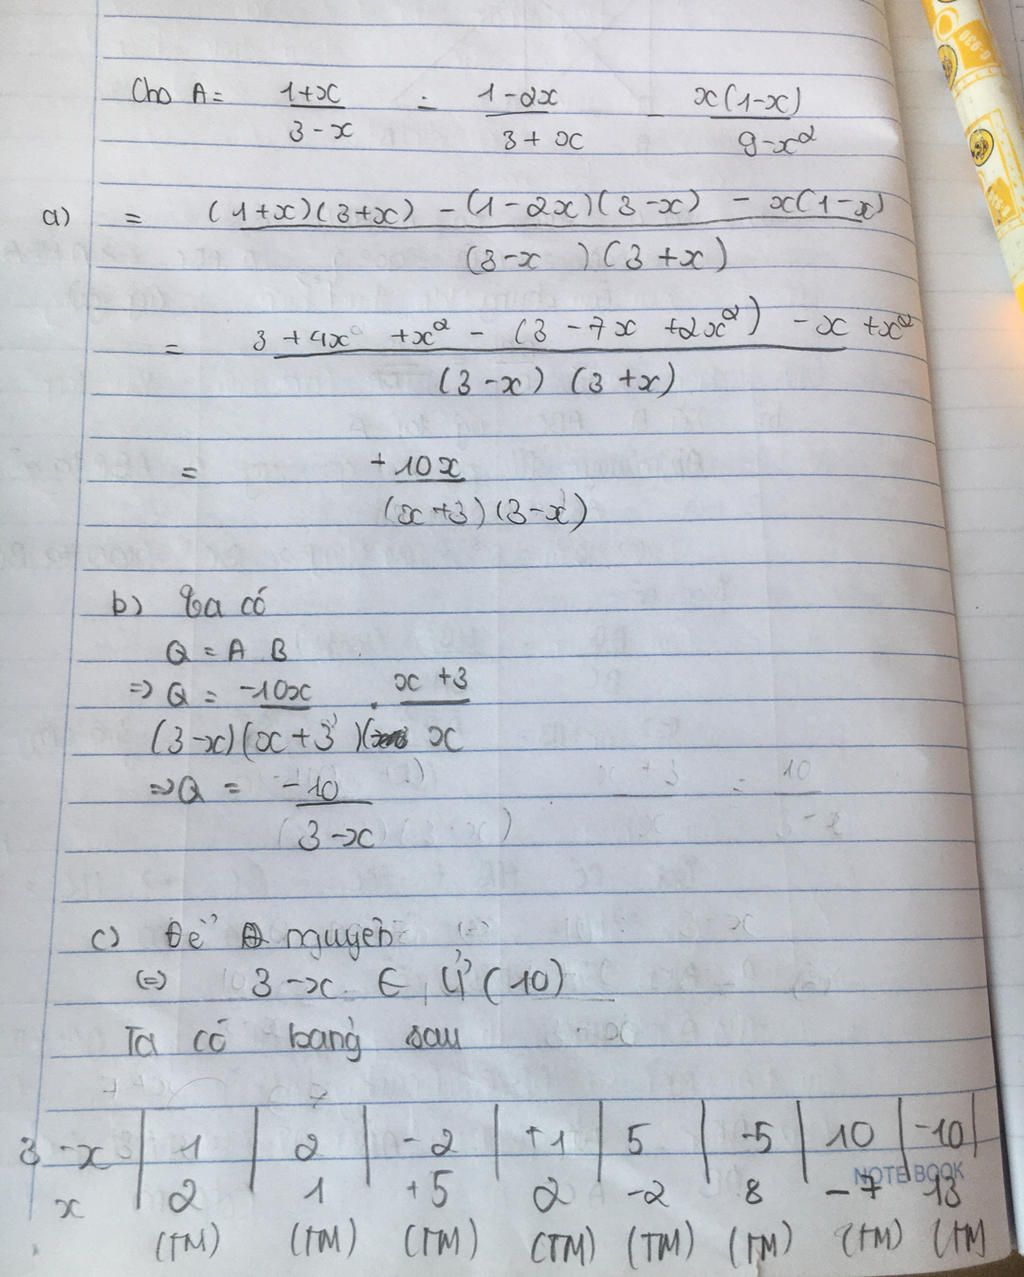 Cho A = (1+x)/(3-x) - (1-2x)/(3+x) - x(1-x)/(9-x²)
a) = ((1+x)(3+x) - (1-2x)(3-x) - x(1-x))/((3-x)(3+x))
= (3+4x+x² - (3-7x+2x²) - x+x²)/((3-x)(3+x))
= +10x/((x+3)(3-x))
b) Ta có
Q = A.B
=> Q = -10x/((3-x)(x+3)) . (x+3)/x
=> Q = -10/(3-x)
c) Để Q nguyên
(=) 3-x ∈ Ư(10)
Ta có bảng sau
3-x | 1 | 2 | -2 | +1 | 5 | -5 | 10 | -10
NOTE BOOK
x 2 1 +5 2 -2 8 -7 13
(TM) (TM) (TM) (TM) (TM) (TM) (TM) (TM